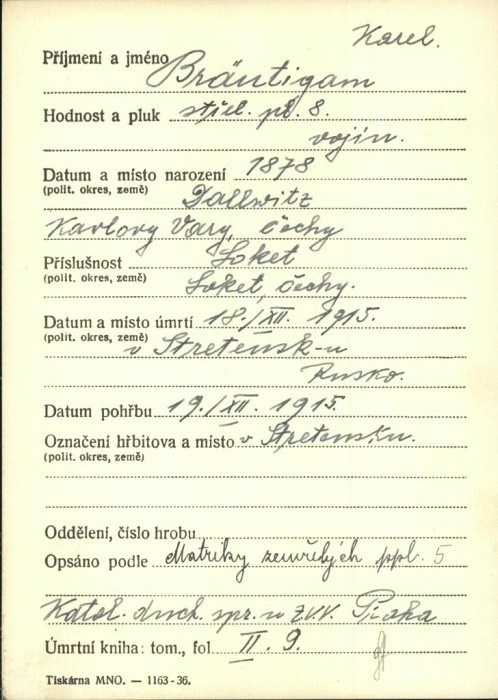 Karel.
Příjmení a jméno Bräutigam
Hodnost a pluk střel. pl. 8.
vojín.
Datum a místo narození 1878
(polit. okres, země) Dallwitz
Karlovy Vary, čechy
Příslušnost Loket
(polit. okres, země) Loket, čechy.
Datum a místo úmrtí 18./XII. 1915.
(polit. okres, země) v Stretensk-u
Rusko.
Datum pohřbu 19./XII. 1915.
Označení hřbitova a místo v Stretensku.
(polit. okres, země)
Oddělení, číslo hrobu
Opsáno podle Matriky zemřelých ppl. 5
Katol. duch. spr. u ZVV. Praha
Úmrtní kniha: tom., fol. II. 9.
Tiskárna MNO. — 1163-36.